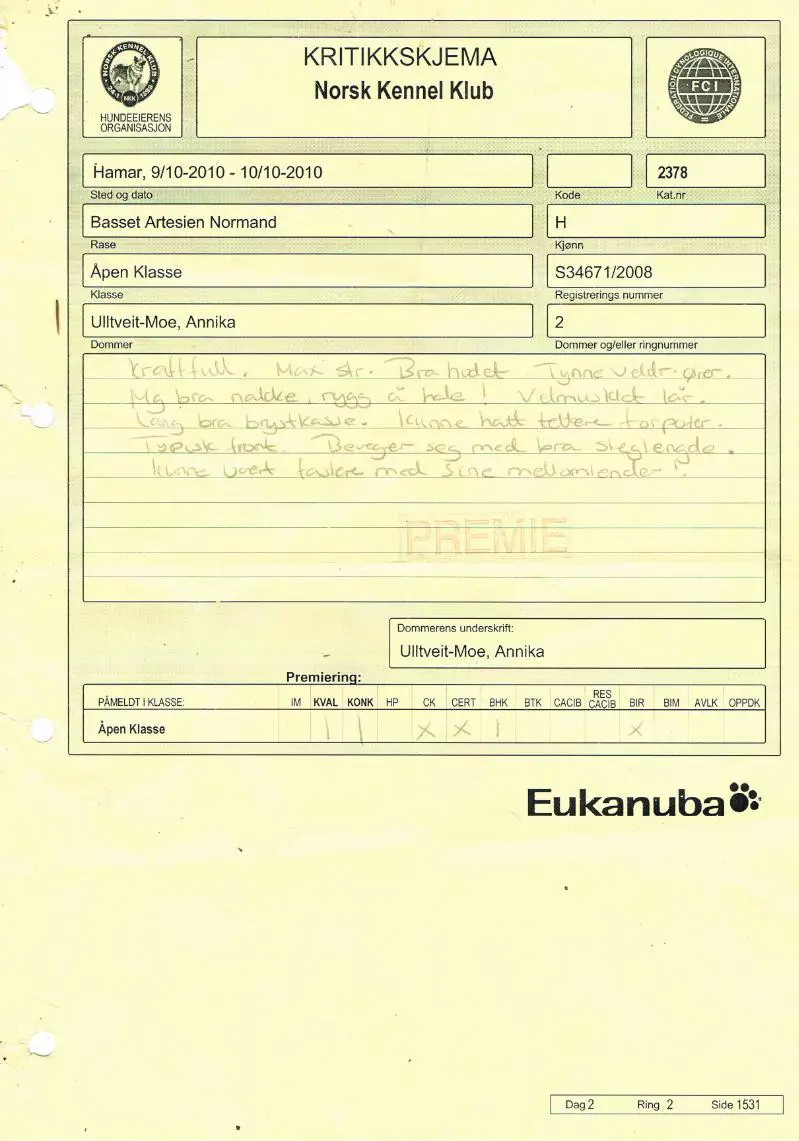 NORSK KENNEL KLUB
NKK 1898
HUNDEEIERENS
ORGANISASJON
KRITIKKSKJEMA
Norsk Kennel Klub
FEDERATION CYNOLOGIQUE INTERNATIONALE
FCI
Hamar, 9/10-2010 - 10/10-2010
2378
Sted og dato
Kode
Kat.nr
Basset Artesien Normand
H
Rase
Kjønn
Åpen Klasse
S34671/2008
Klasse
Registrerings nummer
Ulltveit-Moe, Annika
2
Dommer
Dommer og/eller ringnummer
Kraftfull. Max str. Bra hodet Tynne veldr. ører.
Mg bra nakke, rygg å hale! Velmusklet lår.
Lang bra brystkasse. Kunne hatt tettere forpoter.
Typisk front. Beveger seg med bra steglengde.
Kunne vært fastere med sine mellomhender!
PREMIE
Dommerens underskrift:
Ulltveit-Moe, Annika
Premiering:
PÅMELDT I KLASSE: IM KVAL KONK HP CK CERT BHK BTK CACIB RES CACIB BIR BIM AVLK OPPDK
Åpen Klasse 1 1 X X 1 X
Eukanuba
Dag 2 Ring 2 Side 1531